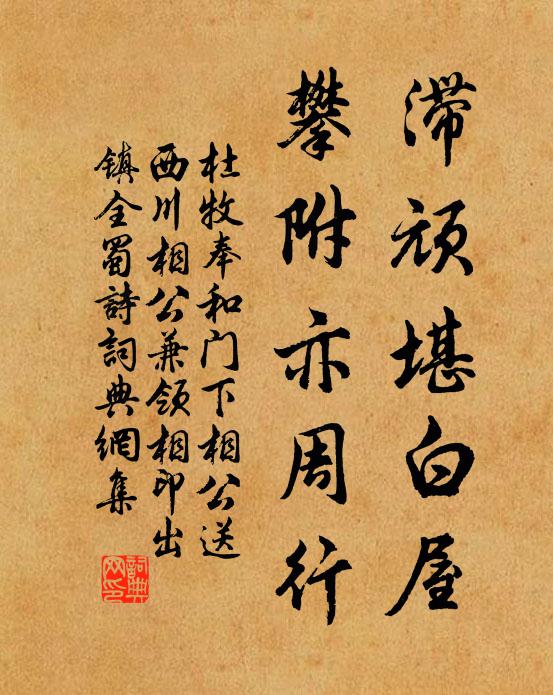 滞顽堪白屋
攀附亦周行
杜牧奉和门下相公送
西川相公兼领相印出
镇全蜀詩詞典網集
詞典
网印